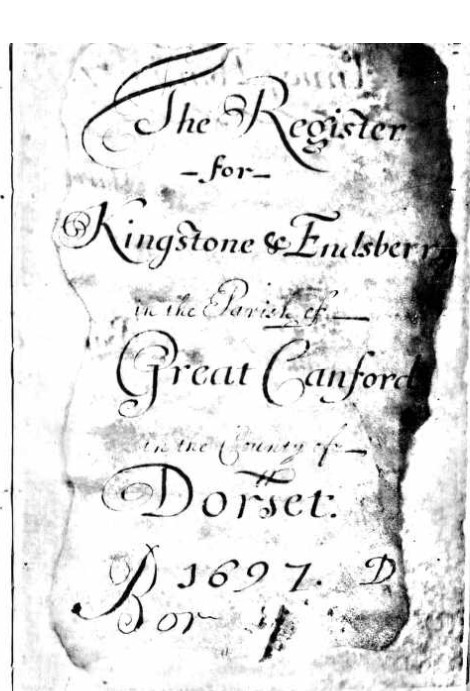 The Register
-for-
Kingstone & Endsberry
in the Parish of
Great Canford
in the County of
Dorset.
1697. D